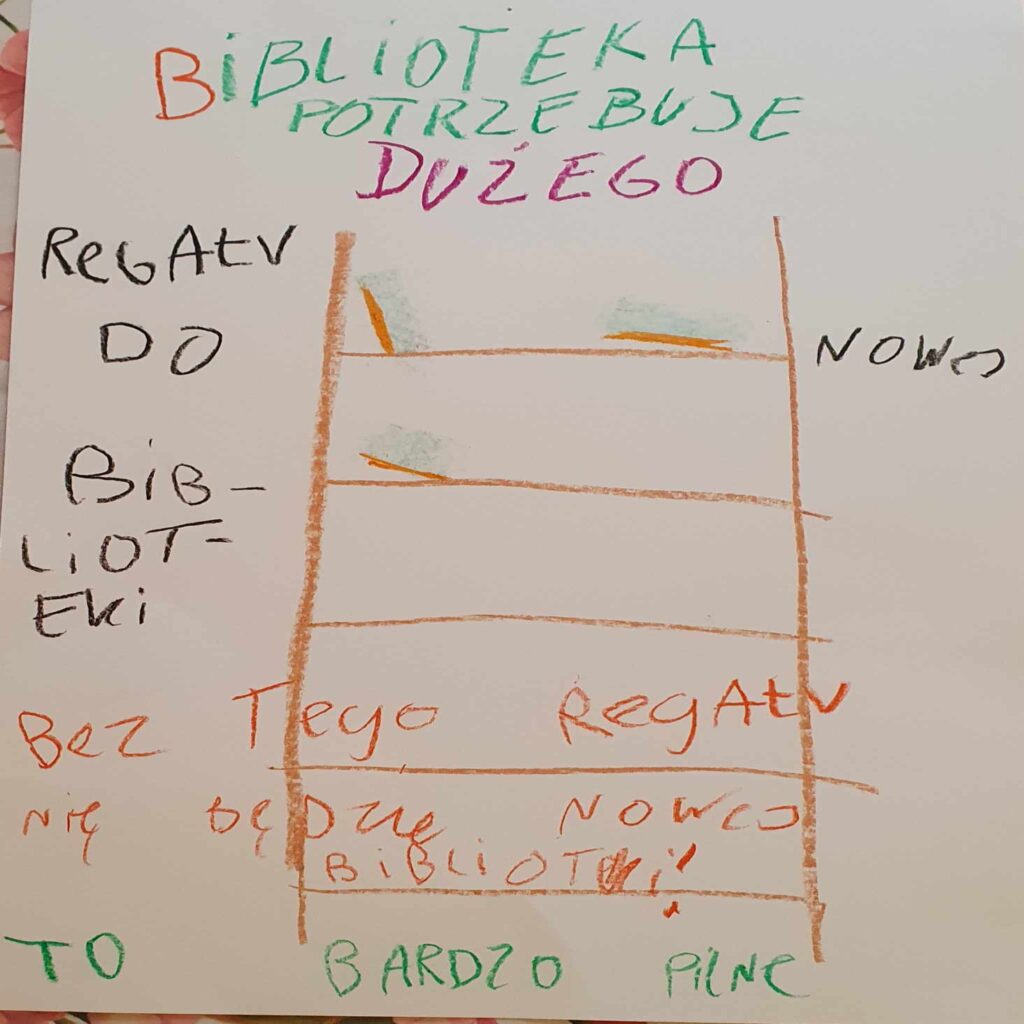 BiBLiOTEKA
POTRZEBUJE
DUŻEGO
ReGAłU
DO
NOWEJ
BiB-
LiOT-
EKi
BeZ Tego RegAłU
Nię BęDZię NOWEJ
BiBLiOTEKi!
TO BARDZO PiLNE